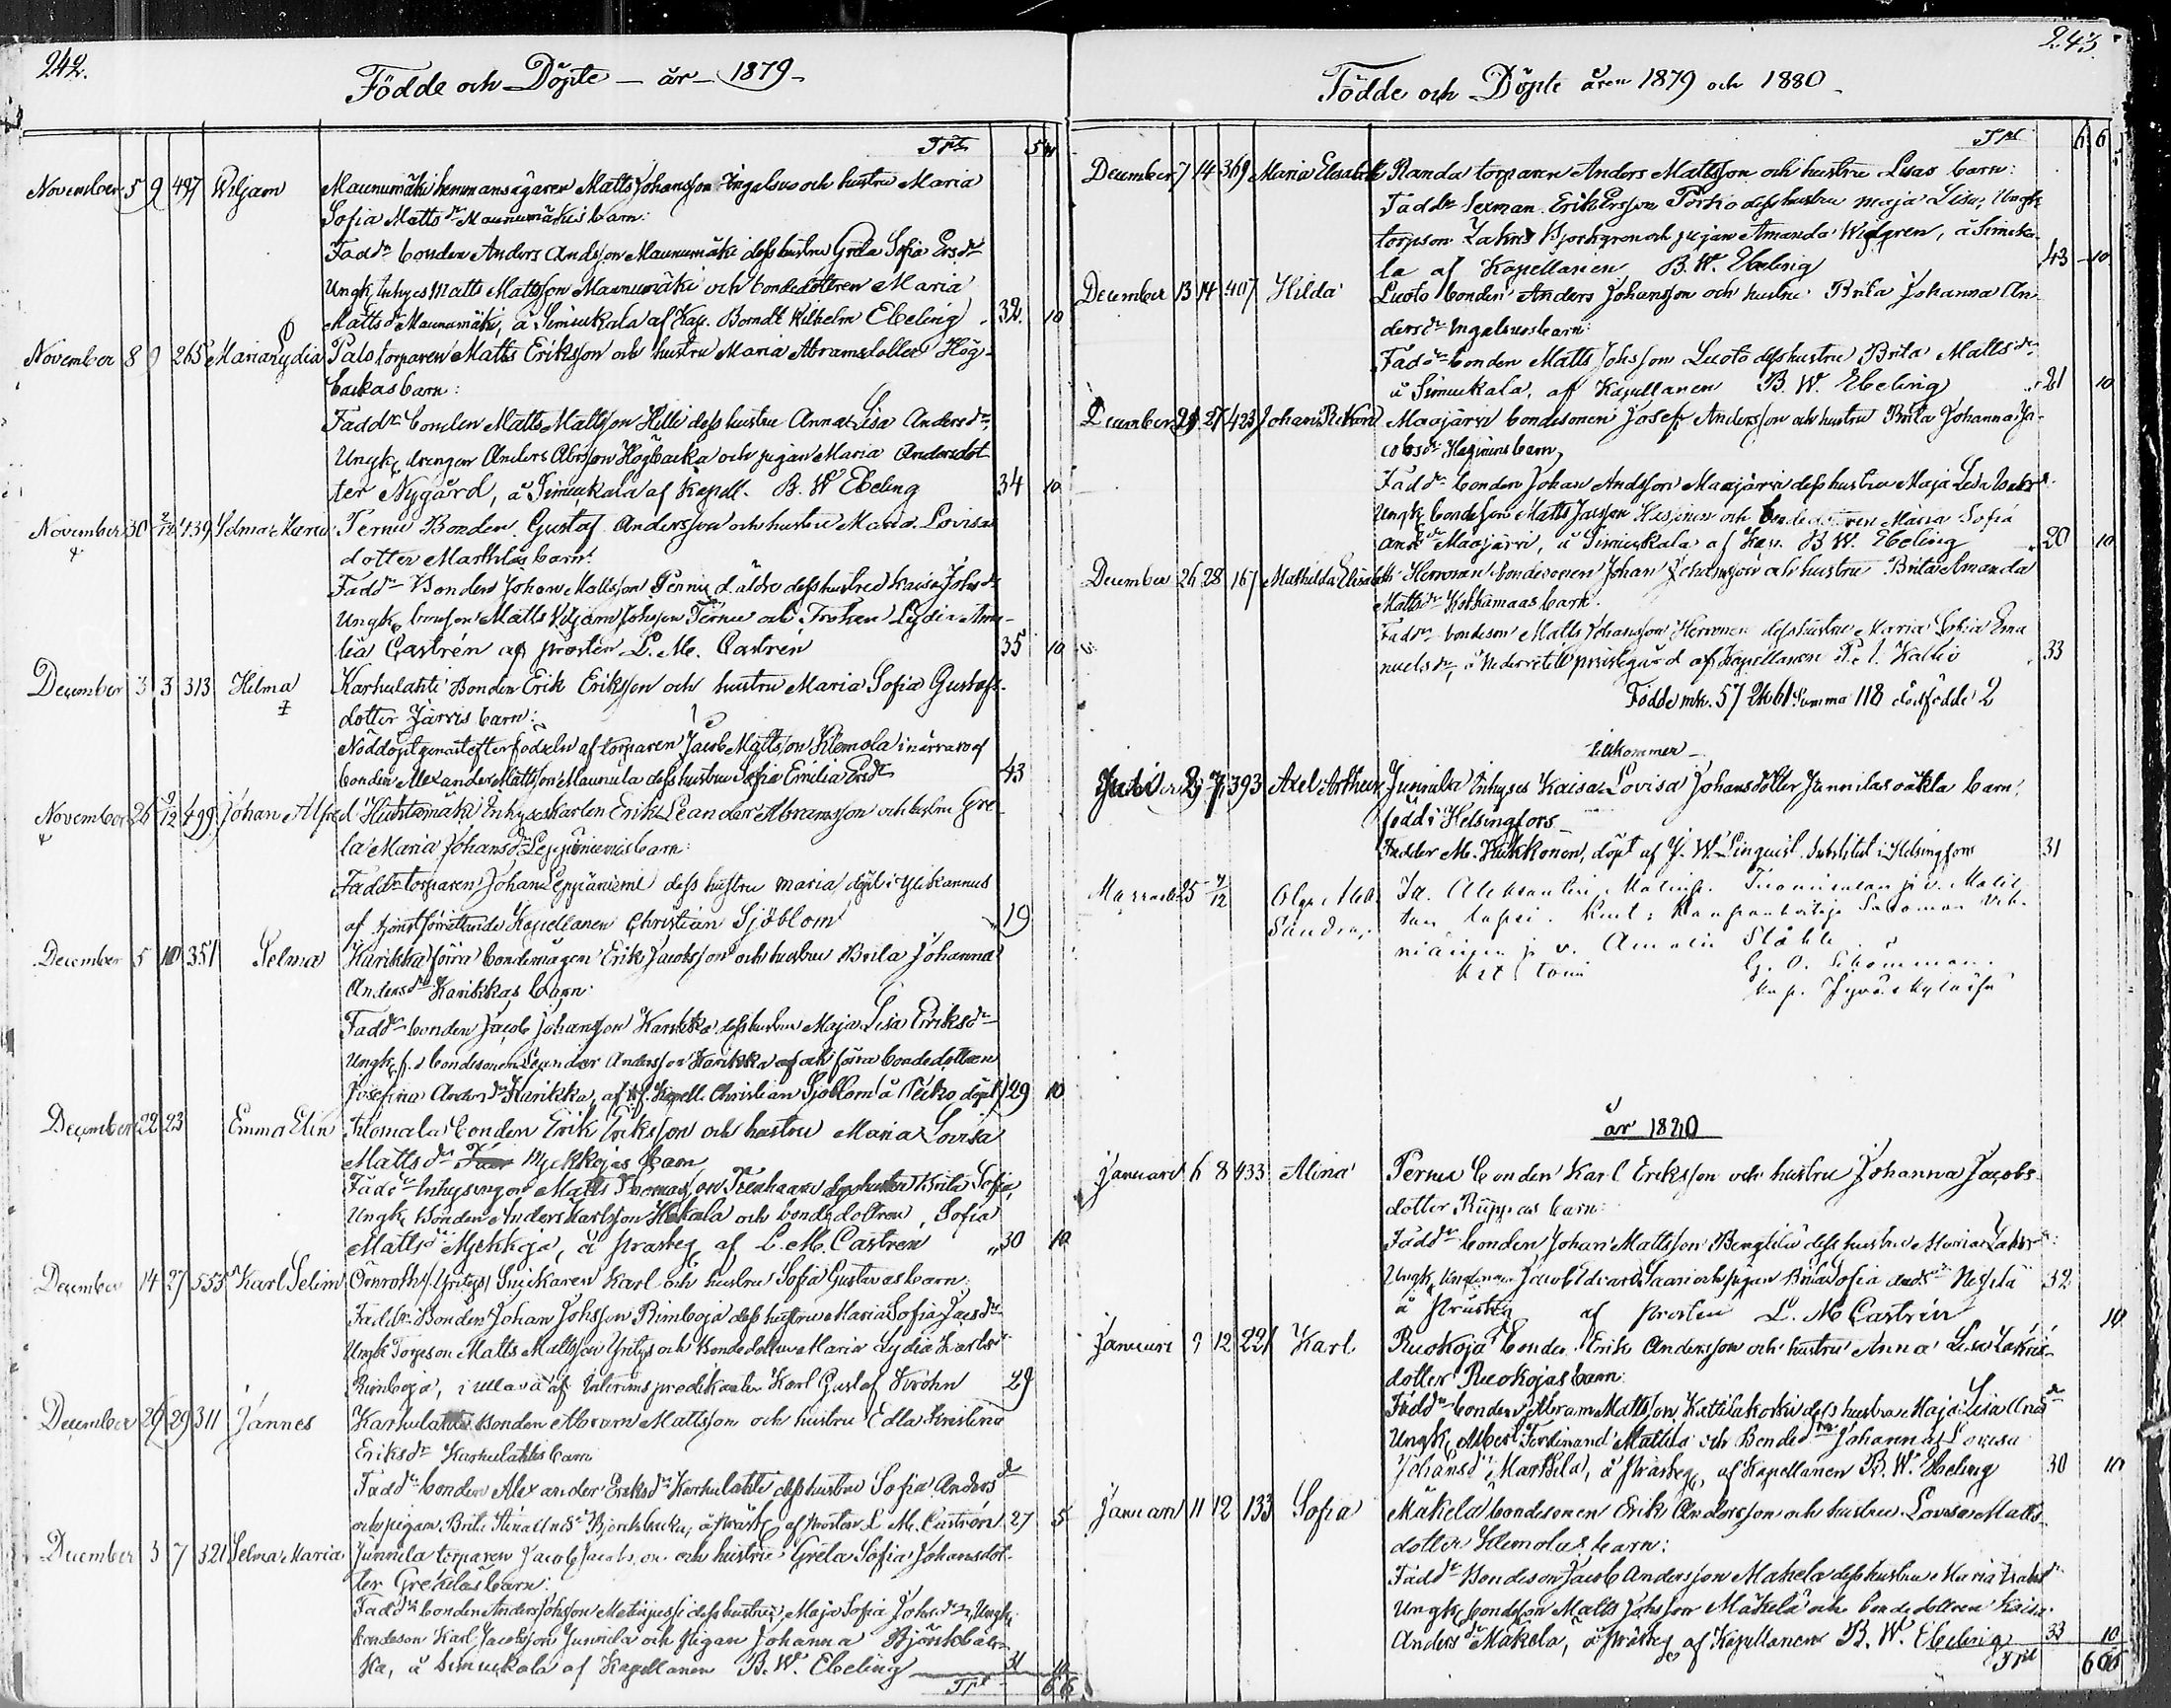 242.
Födde och Döpte — år — 1879 —
Trt
November 5 9 497 Viljam Maunumäki hemmansägaren Matts Johansson Ingalsuo och hustru Maria
Sofia Matts dr Maunumäkis barn:
Fadd. bonden Anders Andsson Maunumäki dess hustru Greta Sofia Ersdr
Ungk. Inhyses Matts Mattsson Maunumäki och bondedottren Maria
Mattsdr Maunumäki, å Simukala af Kap. Berndt Wilhelm Ebeling 32. 10
November 8 9 265 Maria Lydia Palo torparen Matts Eriksson och hustru Maria Abramsdotter Hög-
backas barn:
Fadd. bonden Matts Mattsson Hilli dess hustru Anna Lisa Andersdr,
Ungk. drengen Anders Abrsson Högbacka och pigan Maria Andersdot-
ter Nygård, å Simukala af Kapell. B. W. Ebeling 34 10
November 30 2/12 439 Selma Maria Pernu Bonden Gustaf Andersson och hustru Maria Lovisa
dotter Marttilas barn:
Fadd. Bonden Johan Mattsson Pernu d. äldre dess hustru Kaisa Johsdr
Ungk. bonson Matts Viljam Johsson Pernu och Fröken Lydia Ama-
lia Castrén af prosten L. M. Castrén 35 10
December 3 3 313 Hilma Karhulahti Bonden Erik Eriksson och hustru Maria Sofia Gustafs-
dotter Järvis barn:
Nöddöpt genast efter födseln af torparen Jacob Mattsson Klemola i närvaro af
bonden Alexander Mattsson Maunula dess hustru Sofia Emilia Ersdr 43
November 26 9/12 499 Johan Alfred Huhtamäki Inhyseskarlen Erik Leander Abramsson och hustru Gre-
ta Maria Johansdr Leppäniemis barn:
Fadd. torparen Johan Leppäniemi dess hustru Maria, döpt i Ylikannus
af tjenstförrättande Kapellanen Christian Sjöblom 19
December 5 10 351 Selma Karikka förra bondemågen Erik Jacobsson och hustru Brita Johanna
Andersdr Karikkas barn:
Fadd. bonden Jacob Johansson Karikka dess hustru Maja Lisa Eriksdr
Ungk. f.d. bondesonen Leander Andersson Karikka och förra bondedottren
Josefina Andersdr Karikka, af tf. Kapell. Christian Sjöblom å Peiko döpt 29 10
December 22 23 Emma Elin Klomala bonden Erik Eriksson och hustru Maria Lovisa
Mattsdr Myekkojas barn
Fadd. Inhysingen Matts Thomasson Tienhaara dess hustru Brita Sofia,
Ungk. bonden Anders Karlsson Hakala och bondedottren Sofia
Mattsdr Myekkoja, å prästeg. af L. M. Castren 30 10
December 14 27 553 Karl Selim Örnroth/Yritys/ Snickaren Karl och hustru Sofia Gustavas barn.
Fadd. Bonden Johan Johsson Rimboja dess hustru Maria Sofia Jacsdr
Ungk. Torpeson Matts Mattsson Yritys och Bondedottren Maria Lydia Karlsdr
Rimboja, i Ullava af Interimspredikanten Karl Gustaf Krohn 29
December 26 29 311 Jannes Karhulahti Bonden Abram Mattsson och hustru Edla Kristina
Eriksdr Karhulahtis barn
Fadd. bonden Alexander Eriksdr Karhulahti dess hustru Sofia Andersdr
och pigan Brita Stina Andsdr Björkbacka, å prästg. af Prosten L. M. Castrén 27 5
December 3 7 321 Selma Maria Junnila torparen Jacob Jacobsson och hustru Greta Sofia Johansdot-
ter Grekiläs barn:
Fadd. bonden Anders Johsson Metinjussi dess hustru Maja Sofia Johsdr, Ungk.
bondeson Karl Jacobsson Junnila och pigan Johanna Björkbac-
ka, å Simukala af Kapellanen B. W. Ebeling 31 10
Trt 66
243.
Födde och Döpte åren 1879 och 1880
Trt 6 6
December 7 14 369 Maria Elisabeth Randa torparen Anders Mattsson och hustru Lisas barn:
Faddr Sexman Erik Ersson Torkko dess hustru Maja Lisa, Ungk.
torpson Zakris Bjorkgren och pigan Amanda Widgren, å Simuka-
la af Kapellanen B. W. Ebeling 43 10
December 13 14 407 Hilda Luoto bonden Anders Johansson och hustru Brita Johanna An-
dersdr Ingalsuos barn:
Faddr bonden Matts Johsson Luoto dess hustru Brita Mattsdr
å Simukala, af Kapellanen B. W. Ebeling 21 10
December 27 423 Johan Rikard Maajärvi bondesonen Josef Andersson och hustru Brita Johanna Ja-
cobsdr barn,
Faddr bonden Johan Andsson Maajärvi dess hustru Maja Lisa
Ungk. bondeson Matts Jacsson och bondedottren Maria Sofia
Andsdr Maajärvi, å Simukala af Kap. B. W. Ebeling 20 10
December 26 28 167 Mathilda Elisabeth Herronen bondesonen Johan Johansson och hustru Brita Amanda
Mattsdr Kotkamaas barn.
Fadd. bondeson Matts Johansson Herronen dess hustru Maria Sofia Ema-
nuelsdr, å Nedervetil prästgård af Kapellanen Kallio 33
Födde mk. 57 Qk 61 Summa 118 dödfödde 2
tillkommer
7 393 Axel Arthur Junnila Inhyses Kaisa Lovisa Johansdotter Junnilas oäkta barn,
född i Helsingfors
Fadder M. Hukkonen, döpt af J. W. Linquist Substitut i Helsingfors 31
25 9/12 Olga
Sandra
lapsi. Kum: Salomon
j. v. Amalia Ståhle
Jyväskylässä
år 1880
Januari 6 8 433 Alina Pernu bonden Karl Eriksson och hustru Johanna Jacobs-
dotter Riippas barn:
Fadd. bonden Johan Mattsson dess hustru Maria Zakrsdr
Ungk. Jacob Edvard Saari och pigan Brita Sofia Andsdr 32
å Prästeg af Prosten L. M. Castrén 10
Januari 9 12 221 Karl Ruokoja bonden Erik Andersson och hustru Anna Lisa Zakris-
dotter Ruokojas barn:
Fadd. bonden Abram Mattsson Kattilakoski dess hustru Maja Lisa Andsdr
Ungk. Albert Ferdinand Mattila och Bondedtr Johanna Lovisa
Johansdr Marttila, å Prästeg. af Kapellanen B. W. Ebeling 30 10
Januari 11 12 133 Sofia Mäkelä bondesonen Erik Andersson och hustru Lovisa Matts-
dotter Klemolas barn:
Fadd. Bondeson Jacob Andersson Makela dess hustru Maria
Ungk. bondeson Matts Johsson Mäkelä och bondedottren Kaisa
Andersdr Mäkelä, å prästeg af Kapellanen B. W. Ebeling 33 10
Trt